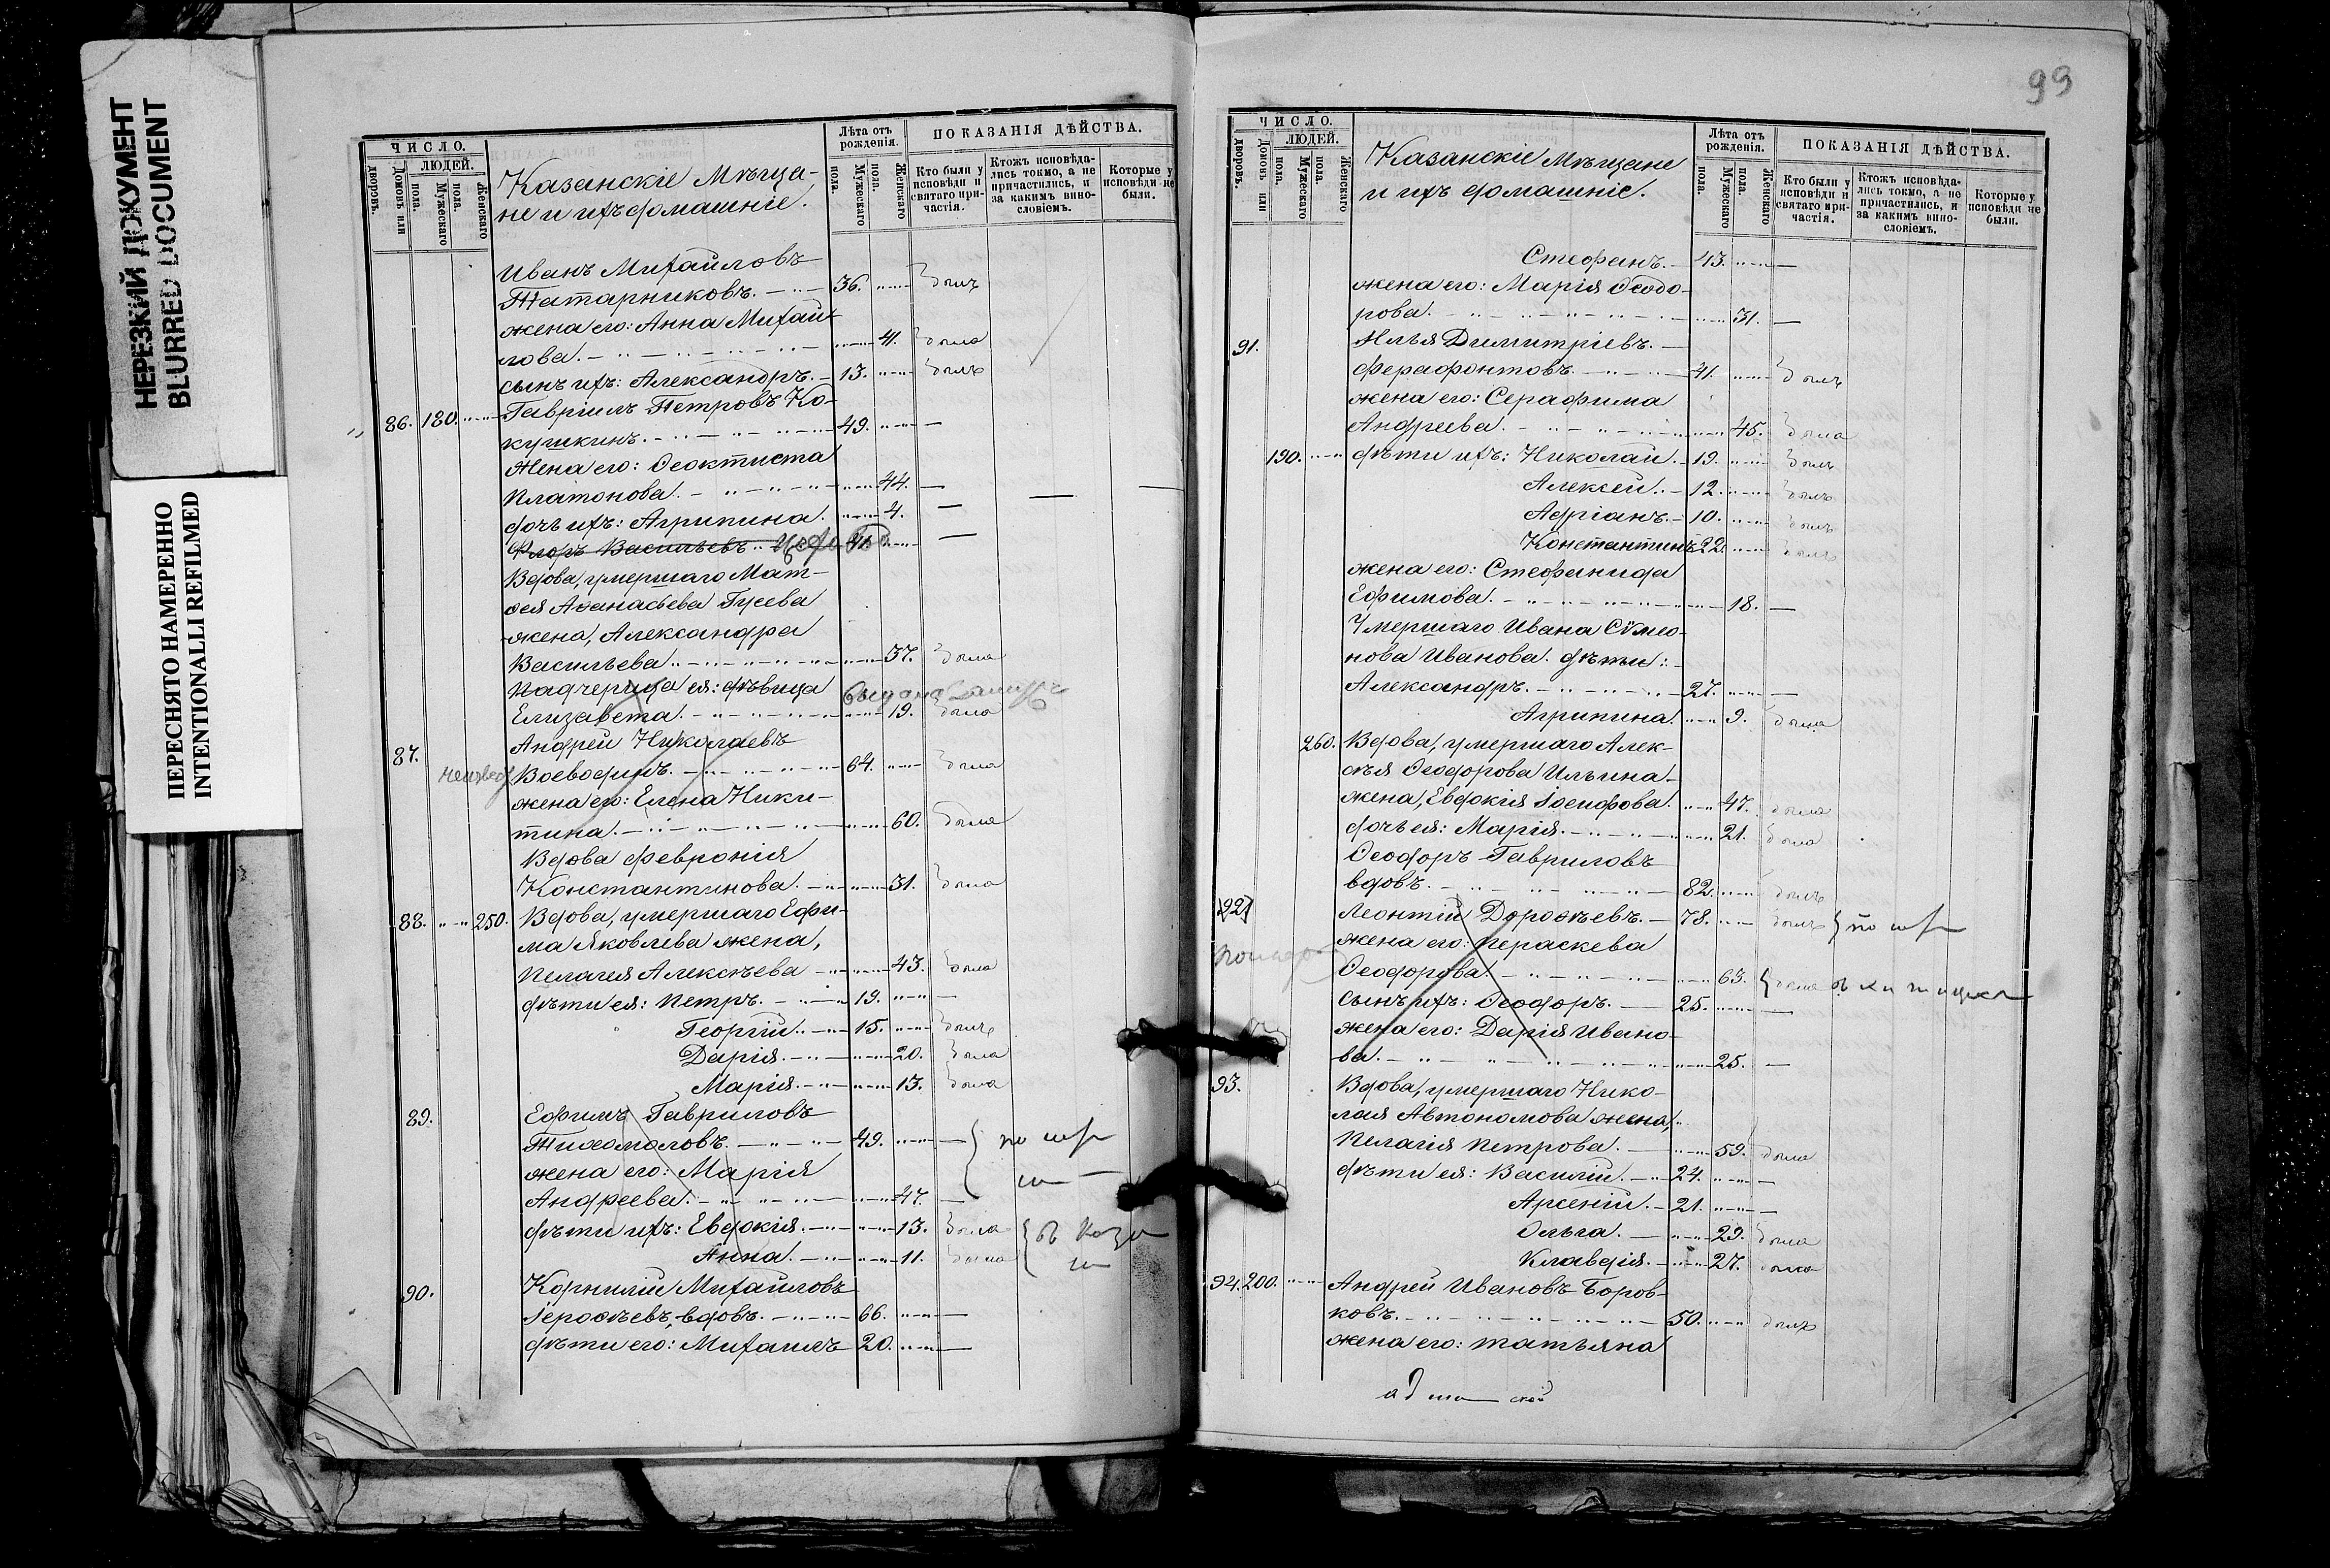 НЕРЕЗКИЙ ДОКУМЕНТ
BLURRED DOCUMENT
ПЕРЕСНЯТО НАМЕРЕННО
INTENTIONALLI REFILMED
ЧИСЛО.
ЛЮДЕЙ.
Домовъ или дворовъ.
Мужескаго пола.
Женскаго пола.
Казанскіе Мѣща-
не и ихъ домашніе.
Лѣта отъ рожденія.
Мужескаго пола.
Женскаго пола.
ПОКАЗАНІЯ ДѢЙСТВА.
Кто были у исповѣди и святаго причастія.
Ктожъ исповѣдались токмо, а не причастились, и за какимъ винословіемъ.
Которые у исповѣди не были.
Иванъ Михайловъ
Татарниковъ. 36. былъ
жена его: Анна Михай-
лова. 41. была
сынъ ихъ: Александръ. 13. былъ
86. 180. Гавріилъ Петровъ Ко-
кушкинъ. 49. —
жена его: Ѳеоктиста
Платонова. 44. —
дочь ихъ: Агрипина. 4. —
Флоръ Васильевъ
Вдова, умершаго Мат-
ѳея Аѳанасьева Гусева
жена, Александра
Васильева. 37. была
Падчерица ея: дѣвица
Елизавета. 19. была
87. Андрей Николаевъ
Воеводинъ. 64. была
жена его: Елена Ники-
тина. 60. была
Вдова Февронія
Константинова. 31. была
88. 250. Вдова, умершаго Ефи-
ма Яковлева жена,
Пелагея Алексѣева 43. была
дѣти ея: Петръ. 19. —
Георгій. 15. былъ
Дарія. 20. была
Марія. 13. была
89. Ефимъ Гавриловъ
Тихомоловъ. 49. —
жена его: Марія
Андреева. 47. —
дѣти ихъ: Евдокія. 13. была
Анна. 11. была
90. Корнилій Михайловъ
Іероѳѣевъ, вдовъ. 66. —
дѣти его: Михаилъ 20. —
99
ЧИСЛО.
ЛЮДЕЙ.
Домовъ или дворовъ.
Мужескаго пола.
Женскаго пола.
Казанскіе Мѣщане
и ихъ домашніе.
Лѣта отъ рожденія.
Мужескаго пола.
Женскаго пола.
ПОКАЗАНІЯ ДѢЙСТВА.
Кто были у исповѣди и святаго причастія.
Ктожъ исповѣдались токмо, а не причастились, и за какимъ винословіемъ.
Которые у исповѣди не были.
Стефанъ. 43. —
жена его: Марія Ѳеодо-
рова. 31. —
91. Илья Димитріевъ.
Ферафонтовъ. 41. былъ
жена его: Серафима
Андреева. 45. была
190. дѣти ихъ: Николай. 19. былъ
Алексей. 12. былъ
Адріанъ. 10. былъ
Константинъ 22. былъ
жена его: Стефанида
Ефимова. 18. —
Умершаго Ивана Сѵмео-
нова Иванова. дѣти:
Александръ. 27. —
Агрипина. 9. была
260. Вдова, умершаго Алек-
сѣя Ѳеодорова Ильина
жена, Евдокія Іосифова. 47. была
дочь ея: Марія. 21. была
Ѳеодоръ Гавриловъ
вдовъ. 82. былъ
92. Леонтій Дороѳѣевъ. 78. былъ
жена его: Пераскева
Ѳеодорова. 63. была
сынъ ихъ: Ѳеодоръ. 25. —
жена его: Дарія Ивано-
ва. 25. —
93. Вдова, умершаго Нико-
лая Автономова жена,
Пелагія Петрова. 59. была
дѣти ея: Василій. 24. —
Арсеній. 21. —
Ольга. 29. была
Клавдія. 27. была
94. 200. Андрей Ивановъ Боров-
ковъ. 50. былъ
жена его: Татьяна